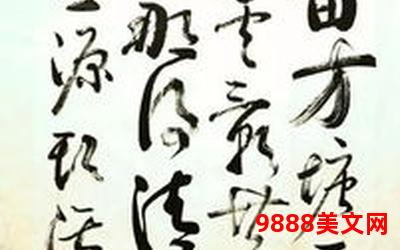 方塘
云影共
那得清
源頭活
9888美文网